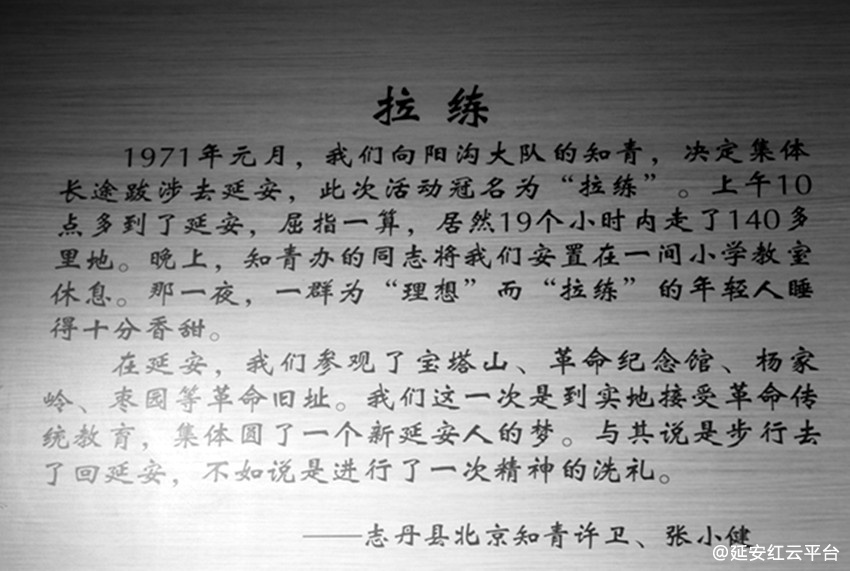 拉练
1971年元月，我们向阳沟大队的知青，决定集体
长途跋涉去延安，此次活动冠名为“拉练”。上午10
点多到了延安，屈指一算，居然19个小时内走了140多
里地。晚上，知青办的同志将我们安置在一间小学教室
休息。那一夜，一群为“理想”而“拉练”的年轻人睡
得十分香甜。
在延安，我们参观了宝塔山、革命纪念馆、杨家
岭、枣园等革命旧址。我们这一次是到实地接受革命传
统教育，集体圆了一个新延安人的梦。与其说是步行去
了回延安，不如说是进行了一次精神的洗礼。
——志丹县北京知青许卫、张小健
@延安红云平台